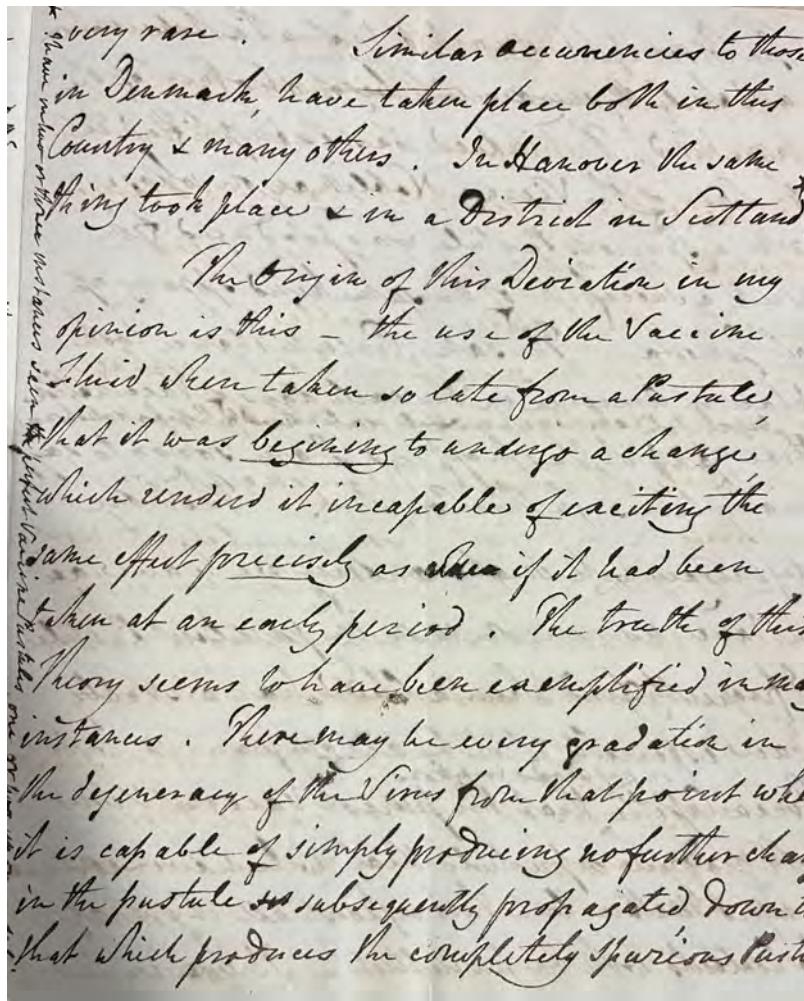 very rare. Similar occurrencies to those
in Denmark, have taken place both in this
Country & many others. In Hanover the same
thing took place & in a District in Scotland
The Origin of this Deviation in my
opinion is this - the use of the Vaccine
Fluid when taken so late from a Pustule,
that it was begining to undergo a change,
which renderd it incapable of exciting the
same effect precisely as if it had been
taken at an early period. The truth of this
Theory seems to have been exemplified in ma
instances. There may be every gradation in
the degeneracy of the Virus from that point whe
it is capable of simply producing no further cha
in the pustule subsequently propagated down
that which produces the completely spurious Pust
I have in two or three instances seen the perfect Vaccine Pustules one or two